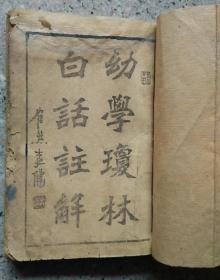 幼學瓊林
白話註解